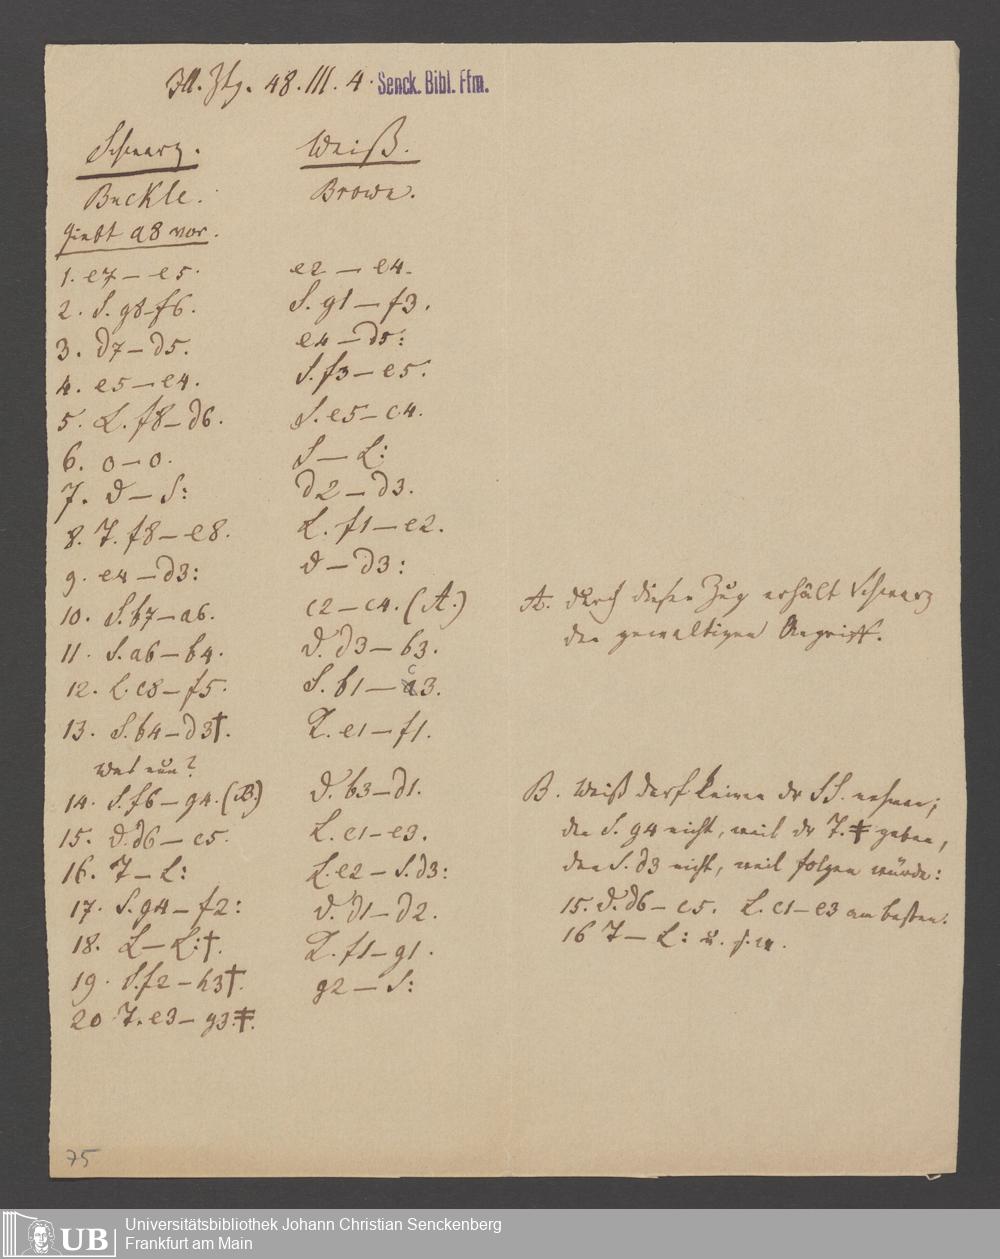 Ill. Ztg. 48. III. 4. Senck. Bibl. Ffm.
Schwarz. Weiß.
Buckle. Browne.
giebt a8 vor.
1. e7 – e5. e2 – e4.
2. S. g8–f6. S. g1 – f3.
3. d7 – d5. e4 – d5:
4. e5 – e4. S. f3 – e5.
5. L. f8 – d6. S. e5 – c4.
6. o – o. S – L:
7. D – S: d2 – d3.
8. T. f8 – e8. L. f1 – e2.
9. e4 – d3: D – d3:
10. S. b7 – a6. c2 – c4. (A.)
11. S. a6 – b4. D. d3 – b3.
12. L. c8 – f5. S. b1 – c3.
13. S. b4 – d3†. K. e1 – f1.
was nun?
14. S. f6 – g4. (B.) D. b3 – d1.
15. D. d6 – c5. L. c1 – e3.
16. T – L: L. e2 – S. d3:
17. S. g4 – f2: D. d1 – d2.
18. L – L:†. K. f1 – g1.
19. S. f2 – h3†. g2 – S:
20 T. e3 – g3.‡.
A. durch diesen Zug erhält Schwarz
den gewaltigen Angriff.
B. Weiß darf keinen der SS. nehmen;
den S. g4 nicht, weil der T.‡ geben,
den S. d3 nicht, weil folgen würde:
15. D. d6 – c5. L. c1 – e3 am besten.
16 T – L: u. s. w.
75
UB Universitätsbibliothek Johann Christian Senckenberg
Frankfurt am Main